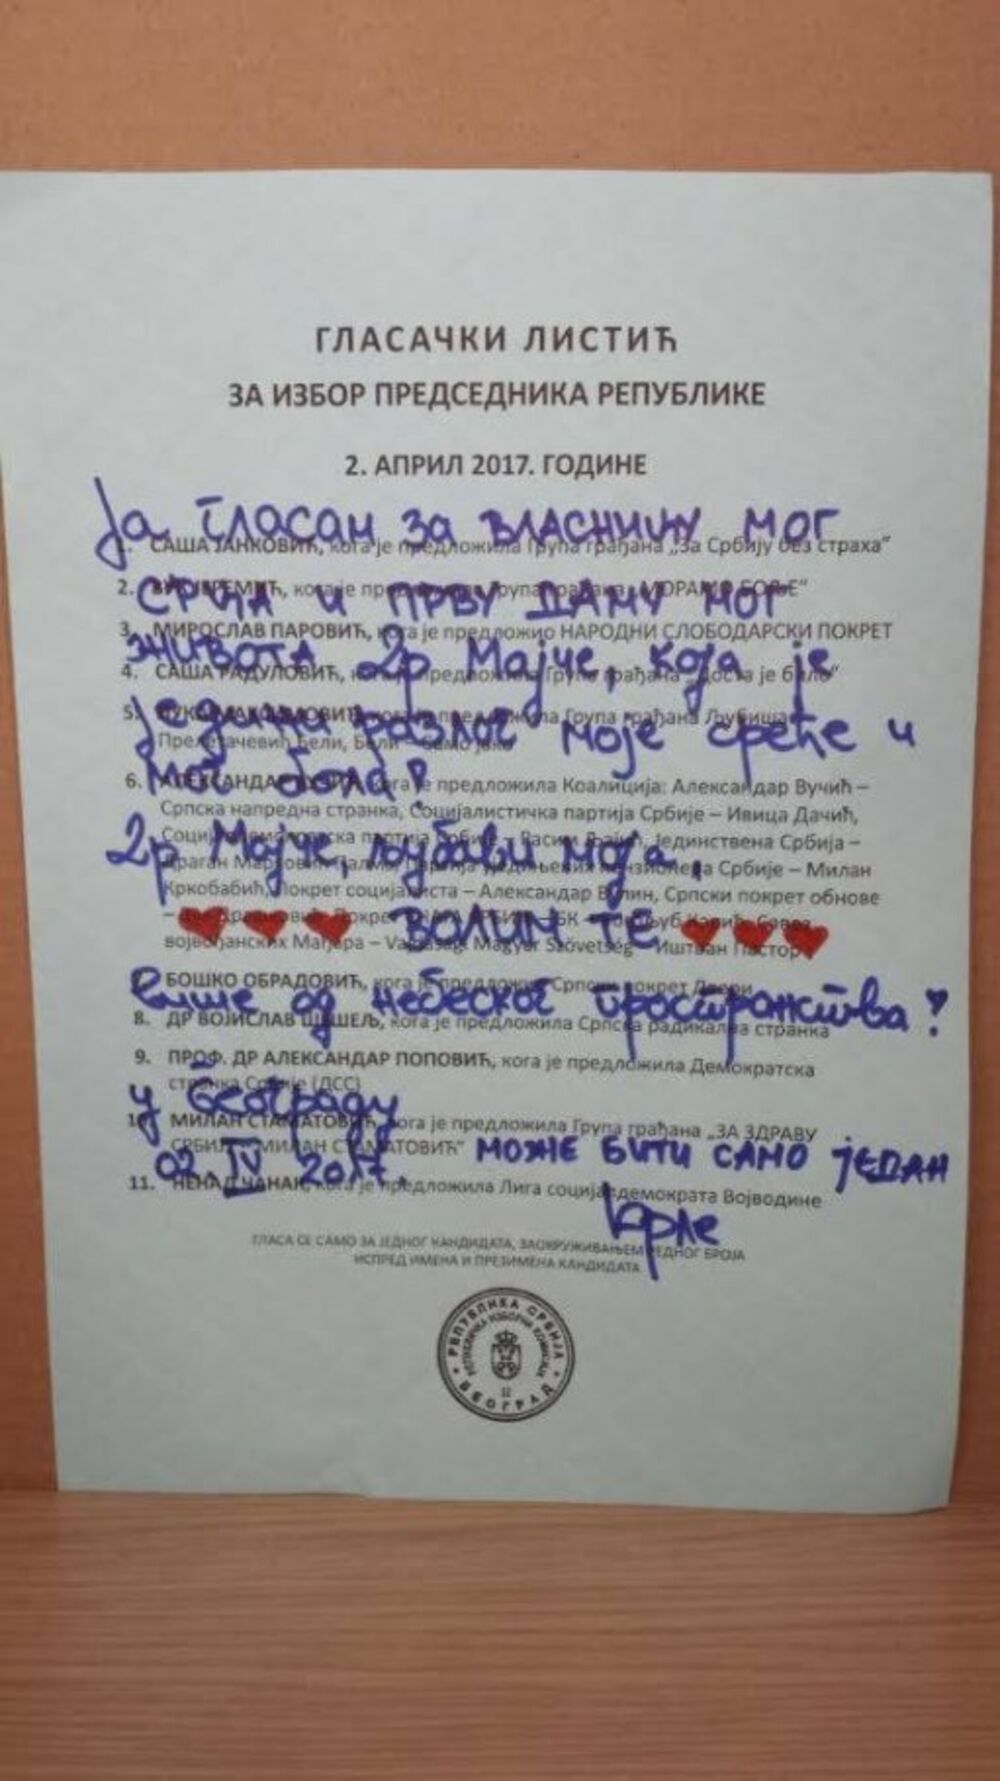 ГЛАСАЧКИ ЛИСТИЋ
ЗА ИЗБОР ПРЕДСЕДНИКА РЕПУБЛИКЕ
2. АПРИЛ 2017. ГОДИНЕ
Ја гласам за ВЛАСНИЦУ МОГ
1. САША ЈАНКОВИЋ, кога је предложила Група грађана „За Србију без страха“
2. ВУК ЈЕРЕМИЋ, кога је предложила Група грађана „МОРАМО БОЉЕ“
СРЦА И ПРВУ ДАМУ МОГ
3. МИРОСЛАВ ПАРОВИЋ, кога је предложио НАРОДНИ СЛОБОДАРСКИ ПОКРЕТ
ЖИВОТА др Мајче, која је
4. САША РАДУЛОВИЋ, кога је предложила Група грађана „Доста је било“
5. кога је предложила Група грађана Љубиша
једини разлог моје среће и
Прелетачевић Бели, Бели – Само јако
мог бола!
6. АЛЕКСАНДАР ВУЧИЋ, кога је предложила Коалиција: Александар Вучић –
Српска напредна странка, Социјалистичка партија Србије – Ивица Дачић,
Социјалдемократска партија Србије – Расим Љајић, Јединствена Србија –
др Мајче, љубави моја,
Драган Марковић Палма, Партија уједињених пензионера Србије – Милан
Кркобабић, Покрет социјалиста – Александар Вулин, Српски покрет обнове
– Покрет СНАГА СРБИЈЕ – БК – Богољуб Карић, Савез
ВОЛИМ ТЕ
војвођанских Мађара – Vajdasági Magyar Szövetség – Иштван Пастор
БОШКО ОБРАДОВИЋ, кога је предложио Српски покрет Двери
више од небеског пространства!
8. ДР ВОЈИСЛАВ ШЕШЕЉ, кога је предложила Српска радикална странка
9. ПРОФ. ДР АЛЕКСАНДАР ПОПОВИЋ, кога је предложила Демократска
странка Србије (ДСС)
у Београду
10. МИЛАН СТАМАТОВИЋ, кога је предложила Група грађана „ЗА ЗДРАВУ
СРБИЈУ – МИЛАН СТАМАТОВИЋ“
02. IV 2017. МОЖЕ БИТИ САМО ЈЕДАН
11. НЕНАД ЧАНАК, кога је предложила Лига социјалдемократа Војводине
ГЛАСА СЕ САМО ЗА ЈЕДНОГ КАНДИДАТА, ЗАОКРУЖИВАЊЕМ РЕДНОГ БРОЈА
ИСПРЕД ИМЕНА И ПРЕЗИМЕНА КАНДИДАТА
РЕПУБЛИКА СРБИЈА
РЕПУБЛИЧКА ИЗБОРНА КОМИСИЈА
БЕОГРАД